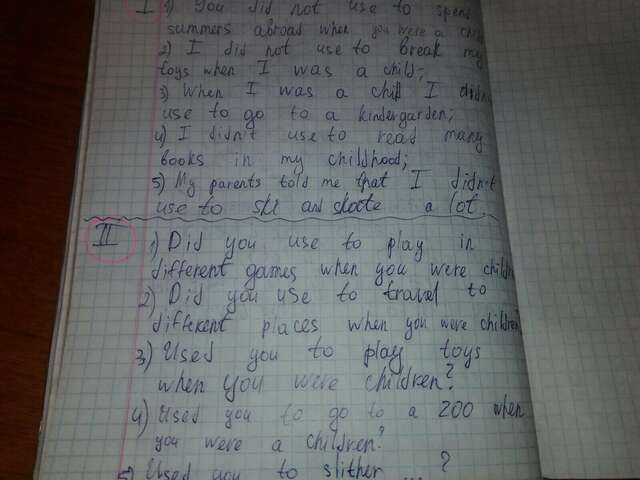 I 1) You did not use to spend
summers abroad when you were a chi
2) I did not use to break my
toys when I was a child;
3) When I was a chill I didn
use to go to a kindergarden;
4) I didn't use to read many
books in my childhood;
5) My parents told me that I didn't
use to ski and skate a lot.
II 1) Did you use to play in
different games when you were childr
2) Did you use to travel to
different places when you were children
3) Used you to play toys
when you were children?
4) Used you to go to a zoo when
you were a children?
5) Used you to slither ... ?